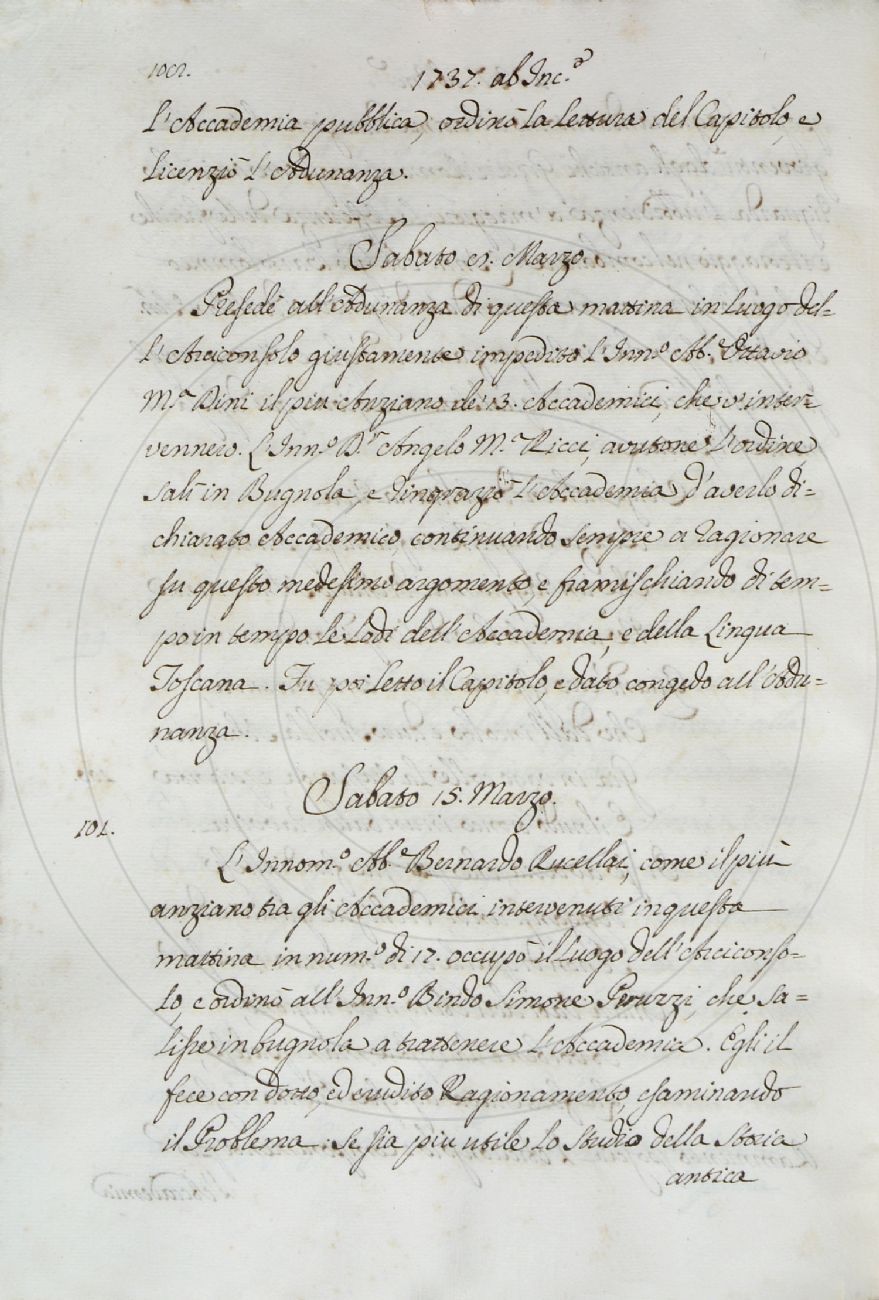 102.
1737. ab Inc.e
L'Accademia pubblica, ordinò la Lettura del Capitolo, e
licenziò l'Adunanza.
Sabato 1. Marzo.
Presedè all'Adunanza di questa mattina in luogo del-
l'Arciconsolo giustamente impedito l'Inn.o Ab.e Ottavio
M.a Dini il piu Anziano de' 13. Accademici, che v'inter-
vennero. L'Inn.o D.r Angelo M.a Ricci, avutone l'ordine
salì in Bugnola, e ringraziò l'Accademia d'averlo di-
chiarato Accademico, continuando sempre a ragionare
su questo medesimo argomento, e framischiando di tem-
po in tempo le Lodi dell'Accademia, e della Lingua
Toscana. Fu poi letto il Capitolo, e dato congedo all'Adu-
nanza.
Sabato 15. Marzo.
101.
L'Innom.o Ab.e Bernardo Rucellai, come il più
anziano tra gli Accademici intervenuti in questa
mattina in num.o di 17. occupò il Luogo dell'Arciconso-
lo, e ordinò all'Inn.o Bindo Simone Peruzzi, che sa-
lisse in bugnola a trattenere l'Accademia. Egli il
fece con dotto, ed erudito Ragionamento, esaminando
il Problema: se sia piu utile lo studio della storia
antica